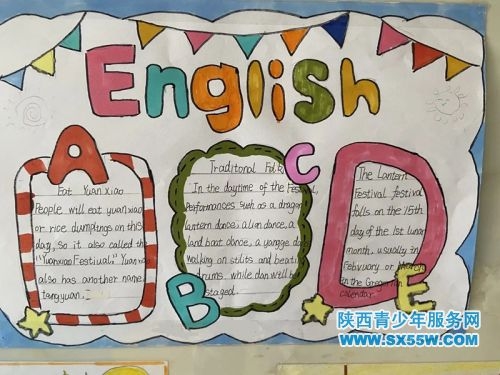 English
A
Eat Yuan Xiao
People will eat yuanxiao
or rice dumplings on this
day, so it also called the
"Yuanxiao Festival." Yuanxiao
also has another name,
tangyuan.
B
C
Traditional Folk
"In the daytime of the Festival,
Performances such as a dragon
lantern dance, a lion dance, a
land boat dance, a yangge dance,
walking on stilts and beating
drums while dan will be
staged.
D
The Lantern
Festival festival
falls on the 15th
day of the 1st lunar
month, usually in
February or March
in the Gregorian
calendar.
E
陕西青少年服务网
www.sx55w.com